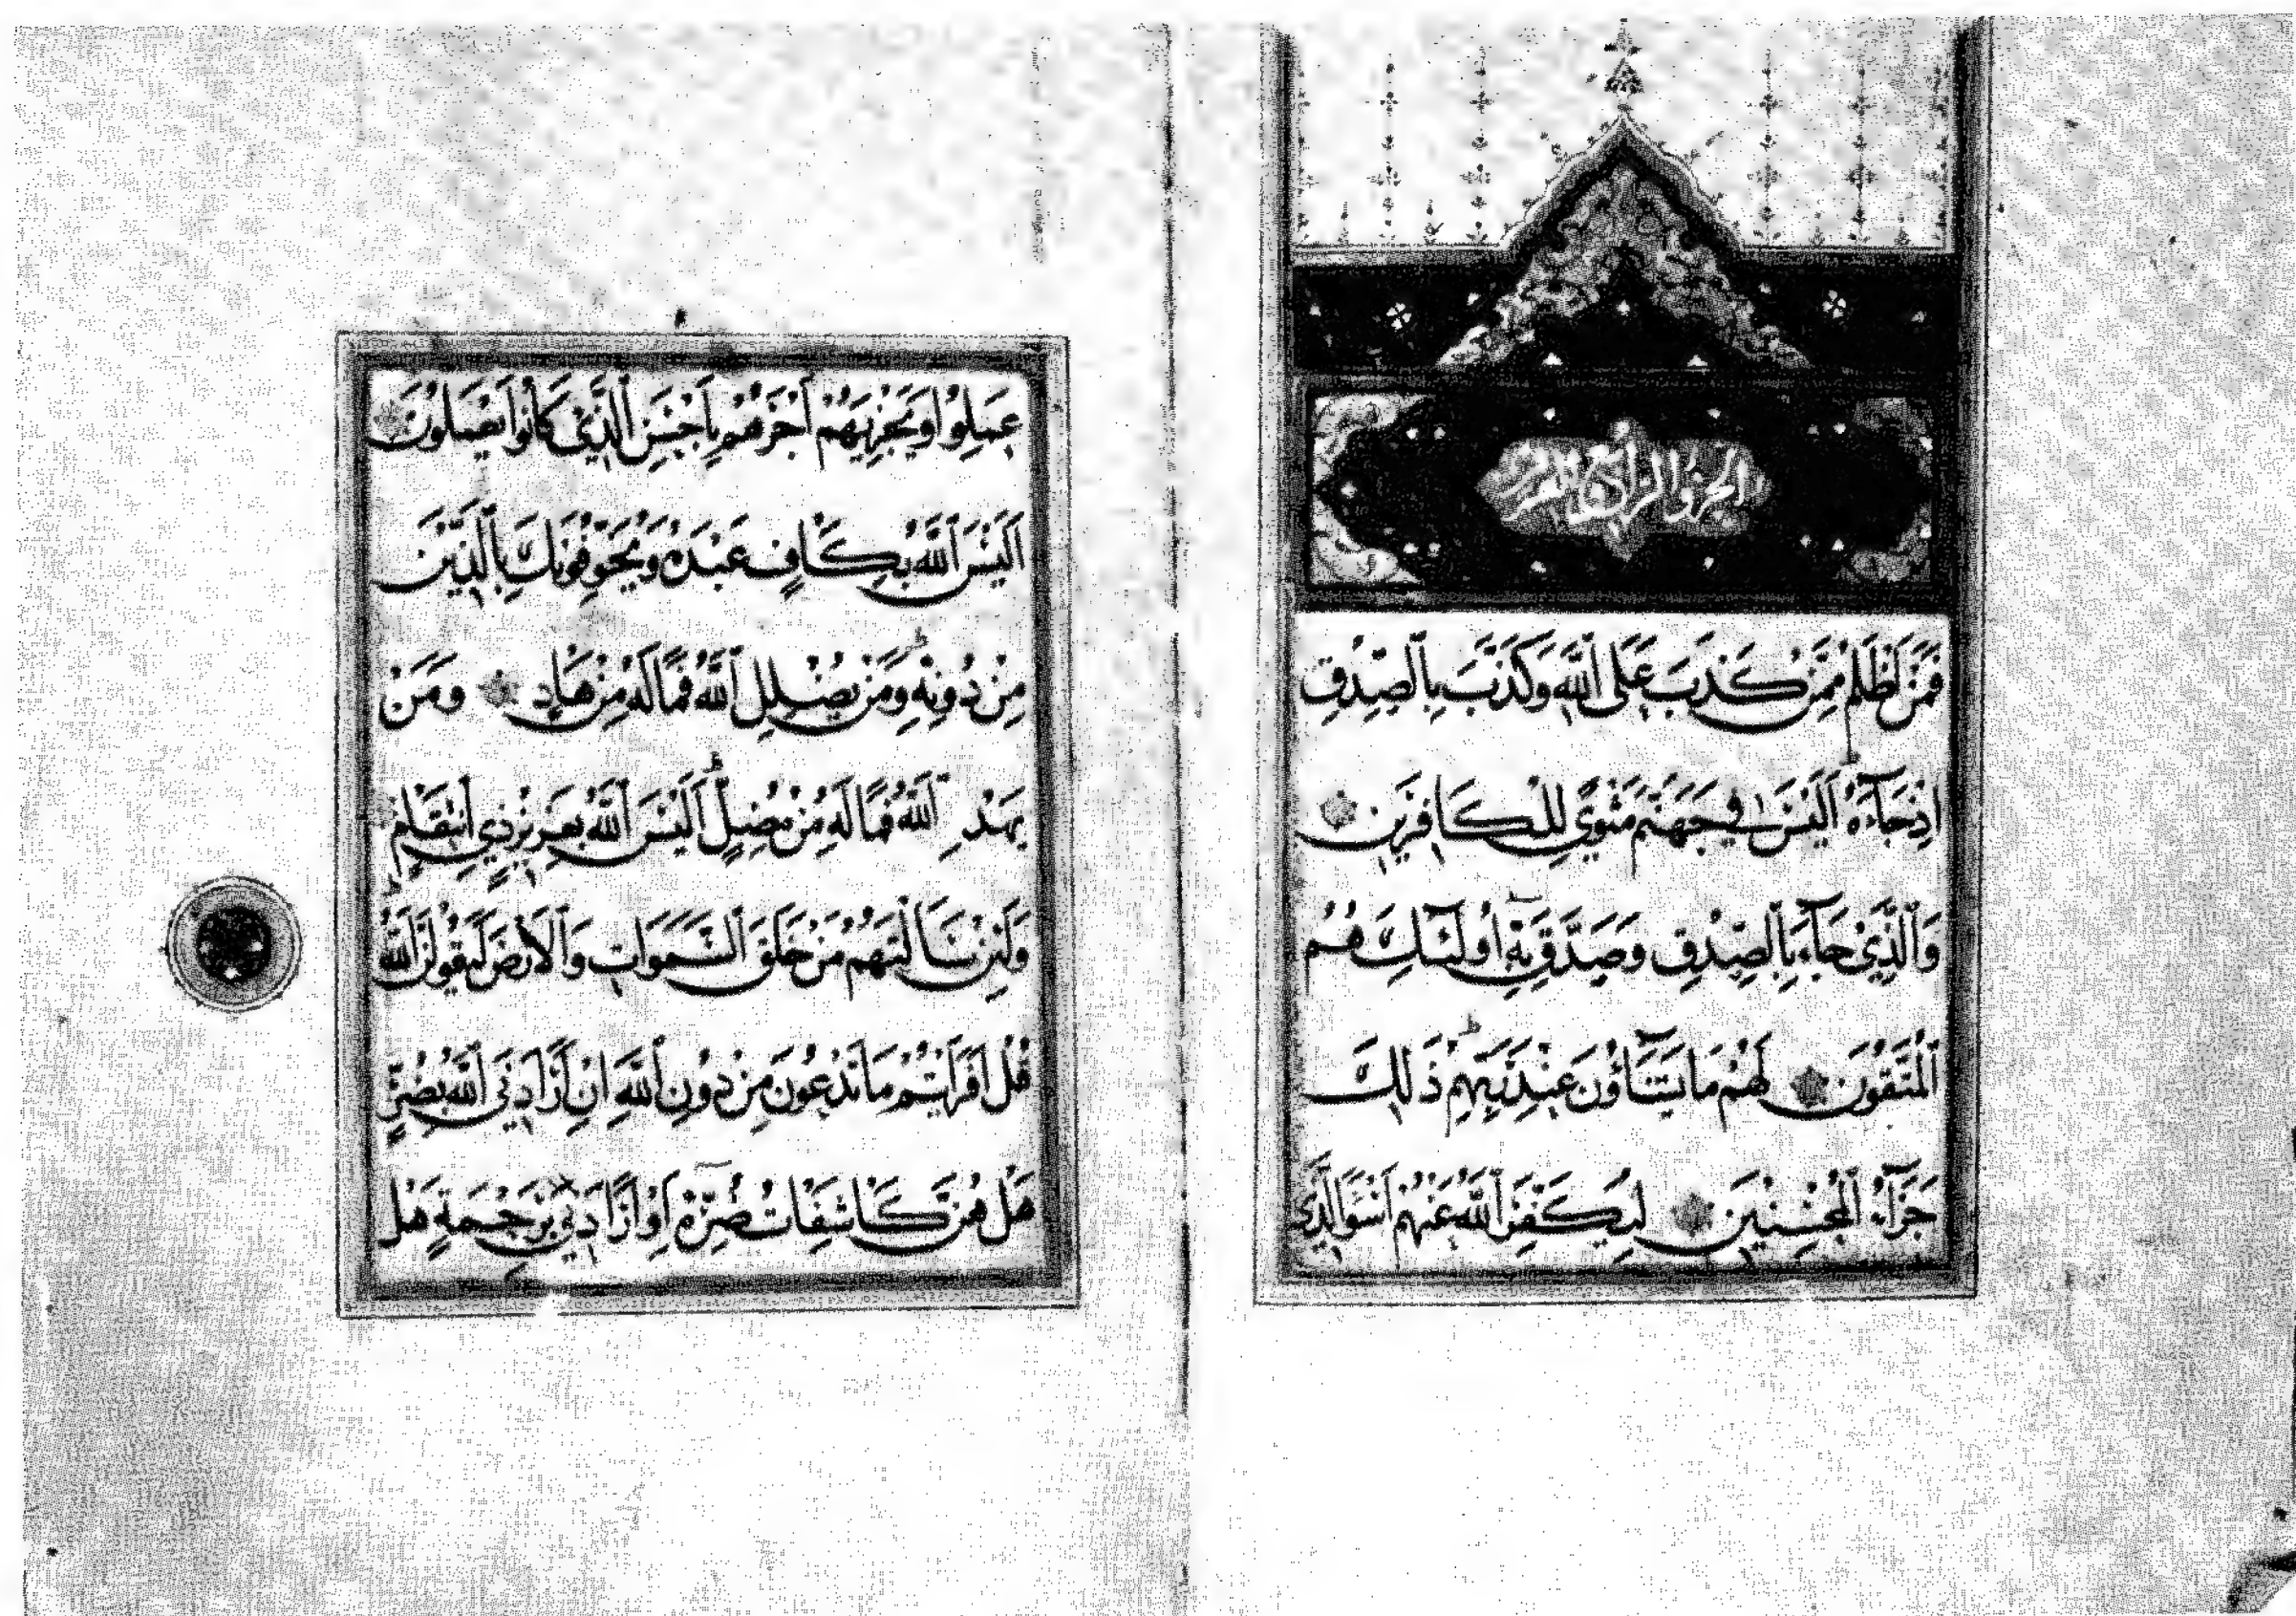 الجزؤ الرابع والعشرون
فَمَنْ أَظْلَمُ مِمَّنْ كَذَبَ عَلَى اللَّهِ وَكَذَّبَ بِالصِّدْقِ
إِذْ جَاءَهُ أَلَيْسَ فِي جَهَنَّمَ مَثْوًى لِلْكَافِرِينَ
وَالَّذِي جَاءَ بِالصِّدْقِ وَصَدَّقَ بِهِ أُولَٰئِكَ هُمُ
الْمُتَّقُونَ لَهُمْ مَا يَشَاؤُنَ عِنْدَ رَبِّهِمْ ذَلِكَ
جَزَاءُ الْمُحْسِنِينَ لِيُكَفِّرَ اللَّهُ عَنْهُمْ أَسْوَأَ الَّذِي
عَمِلُوا وَيَجْزِيَهُمْ أَجْرَهُمْ بِأَحْسَنِ الَّذِي كَانُوا يَعْمَلُونَ
أَلَيْسَ اللَّهُ بِكَافٍ عَبْدَهُ وَيُخَوِّفُونَكَ بِالَّذِينَ
مِنْ دُونِهِ وَمَنْ يُضْلِلِ اللَّهُ فَمَا لَهُ مِنْ هَادٍ وَمَنْ
يَهْدِ اللَّهُ فَمَا لَهُ مِنْ مُضِلٍّ أَلَيْسَ اللَّهُ بِعَزِيزٍ ذِي انْتِقَامٍ
وَلَئِنْ سَأَلْتَهُمْ مَنْ خَلَقَ السَّمَوَاتِ وَالْأَرْضَ لَيَقُولُنَّ اللَّهُ
قُلْ أَفَرَأَيْتُمْ مَا تَدْعُونَ مِنْ دُونِ اللَّهِ إِنْ أَرَادَنِيَ اللَّهُ بِضُرٍّ
هَلْ هُنَّ كَاشِفَاتُ ضُرِّهِ أَوْ أَرَادَنِي بِرَحْمَةٍ هَلْ